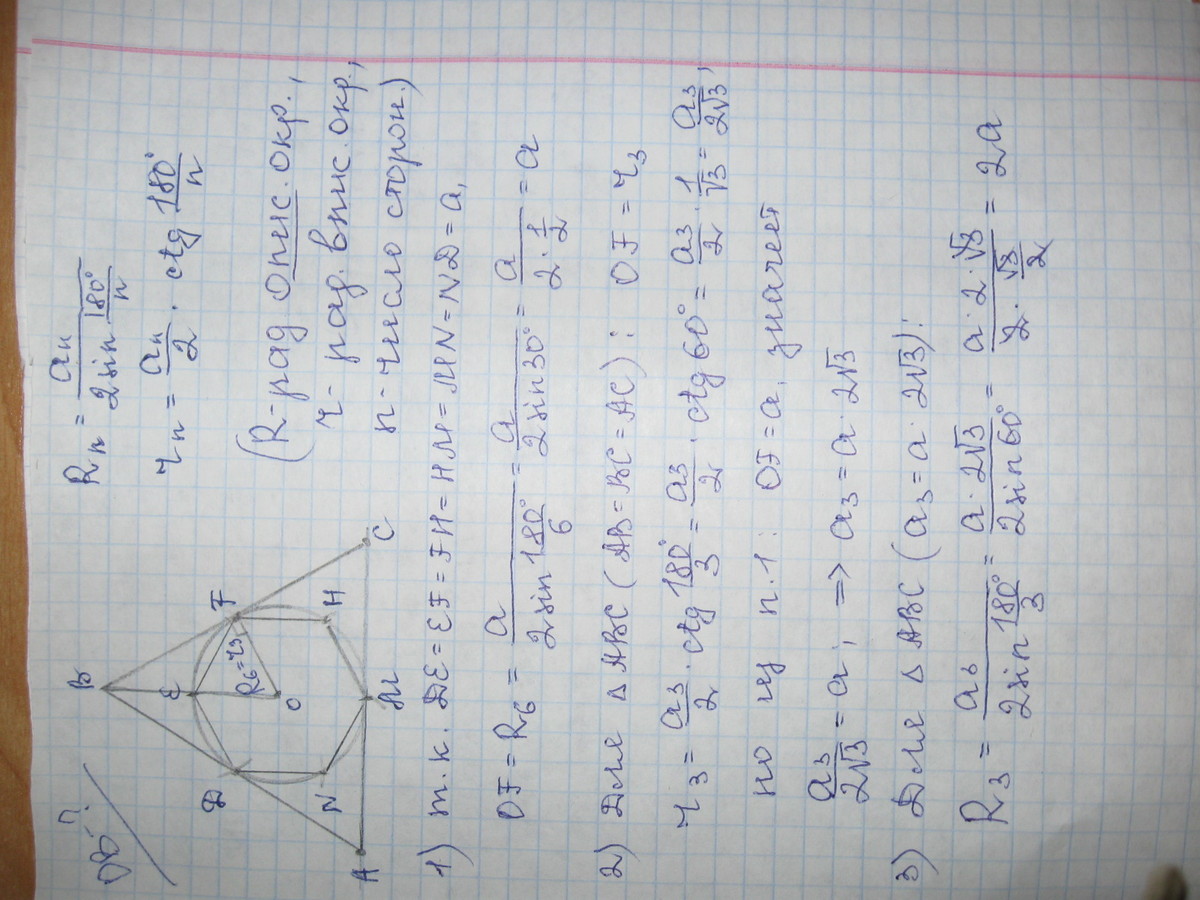 OB-?
B
E
D
F
R₆=r₃
O
N
H
A
M
C
Rₙ = aₙ / (2 sin 180°/n)
rₙ = aₙ/2 · ctg 180°/n
(R-рад опис. окр.,
r- рад. впис. окр.,
n-число сторон.)
1) т.к. DE=EF=FH=HM=MN=ND=a,
OF=R₆ = a / (2 sin 180°/6) = a / (2 sin 30°) = a / (2·1/2) = a
2) Для △ABC (AB=BC=AC): OF=r₃
r₃ = a₃/2 · ctg 180°/3 = a₃/2 · ctg 60° = a₃/2 · 1/√3 = a₃/2√3,
но из п.1: OF=a, значит
a₃/2√3 = a, => a₃ = a·2√3
3) Для △ABC (a₃=a·2√3):
R₃ = a₃ / (2 sin 180°/3) = a·2√3 / (2 sin 60°) = a·2·√3 / (2·√3/2) = 2a